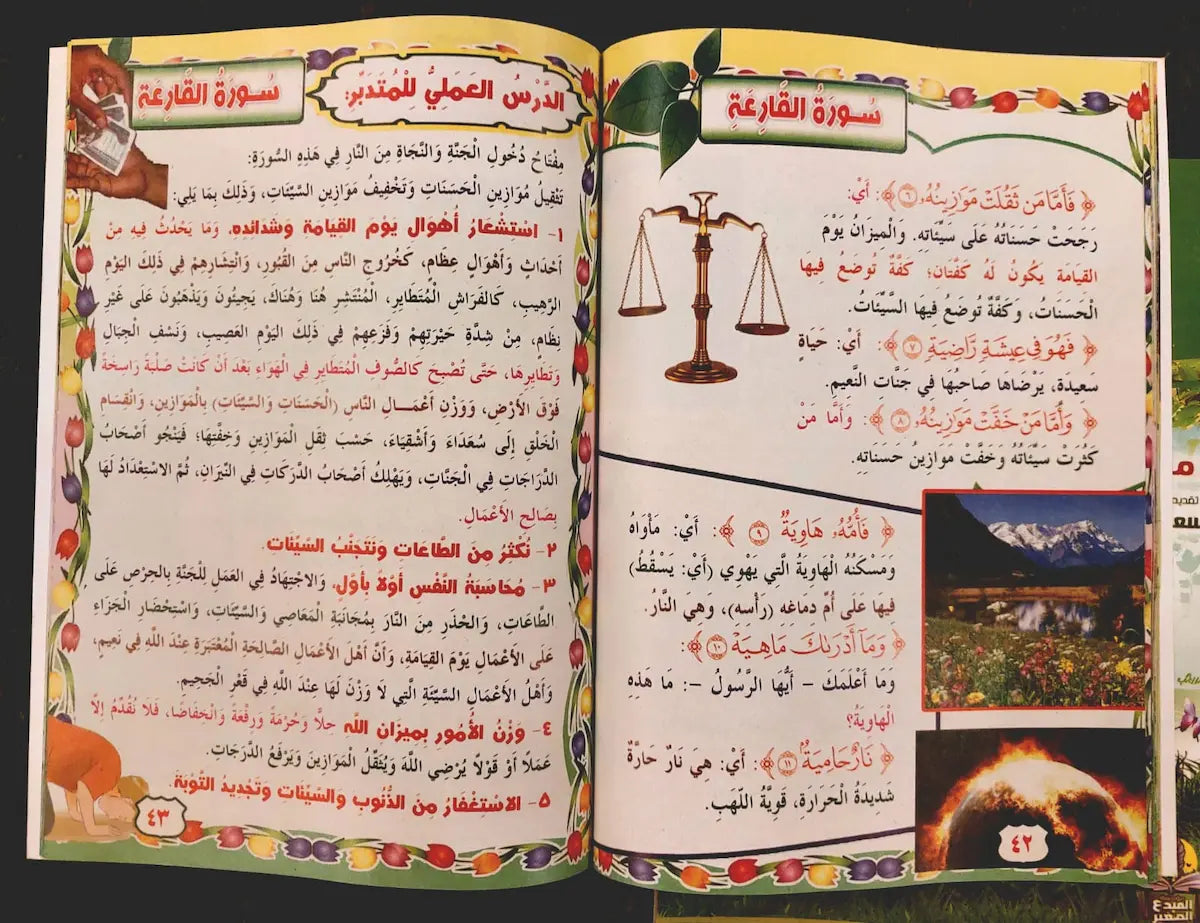 سُورَةُ الْقَارِعَةِ
﴿فَأَمَّا مَن ثَقُلَتْ مَوَازِينُهُۥ ٦﴾: أَيْ:
رَجَحَتْ حَسَنَاتُهُ عَلَى سَيِّئَاتِه. وَالْمِيزَانُ يَوْمَ
القِيَامَة يَكُونُ لَهُ كَفَّتَان؛ كَفَّةٌ تُوضَعُ فِيهَا
الْحَسَنَاتُ، وَكَفَّةٌ تُوضَعُ فِيهَا السَّيِّئَاتُ.
﴿فَهُوَ فِي عِيشَةٍ رَّاضِيَةٍ ٧﴾: أَيْ: حَيَاةٍ
سَعِيدَة، يَرْضَاهَا صَاحِبُهَا فِي جَنَّاتِ النَّعِيمِ.
﴿وَأَمَّا مَنْ خَفَّتْ مَوَازِينُهُۥ ٨﴾: وَأَمَّا مَنْ
كَثُرَتْ سَيِّئَاتُهُ وَخَفَّتْ مَوازِين حَسَنَاتِهِ.
﴿فَأُمُّهُۥ هَاوِيَةٌ ٩﴾: أَيْ: مَأْوَاهُ
وَمَسْكَنُهُ الْهَاوِيَةُ الَّتِي يَهْوِي (أَيْ: يَسْقُطُ)
فِيهَا عَلَى أُمِّ دِمَاغِهِ (رَأْسِهِ)، وَهِيَ النَّارُ.
﴿وَمَآ أَدْرَىٰكَ مَاهِيَهْ ١٠﴾:
وَمَا أَعْلَمَكَ - أَيُّهَا الرَّسُولُ -: مَا هَذِهِ
الْهَاوِيَةُ؟
﴿نَارٌ حَامِيَةٌ ١١﴾: أَيْ: هِي نَارٌ حَارَّةٌ
شَدِيدَةُ الْحَرَارَةِ، قَوِيَّةُ اللَّهَبِ.
٤٢
سُورَةُ الْقَارِعَةِ
الدَّرْسُ العَمَلِيُّ لِلْمُتَدَبِّرِ:
مِفْتَاحُ دُخُولِ الْجَنَّةِ وَالنَّجَاةِ مِنَ النَّارِ فِي هَذِهِ السُّورَةِ:
تَثْقِيلُ مُوَازِينِ الْحَسَنَاتِ وَتَخْفِيفُ مَوَازِينِ السَّيِّئَاتِ، وَذَلِكَ بِمَا يَلِي:
١- اسْتِشْعَارُ أَهْوَالِ يَوْمِ القِيَامَةِ وَشَدَائِدِهِ، وَمَا يَحْدُثُ فِيهِ مِنْ
أَحْدَاثٍ وَأَهْوَالٍ عِظَامٍ، كَخُرُوجِ النَّاسِ مِنَ القُبُورِ، وَانْتِشَارِهِمْ فِي ذَلِكَ اليَوْمِ
الرَّهِيبِ، كَالفَرَاشِ الْمُتَطَايِرِ، الْمُنْتَشِرِ هُنَا وَهُنَاكَ، يَجِيئُونَ وَيَذْهَبُونَ عَلَى غَيْرِ
نِظَامٍ، مِنْ شِدَّةِ حَيْرَتِهِمْ وَفَزَعِهِمْ فِي ذَلِكَ اليَوْمِ العَصِيبِ، وَنَسْفِ الْجِبَالِ
وَتَطَايُرِهَا، حَتَّى تُصْبِحَ كَالصُّوفِ الْمُتَطَايِرِ فِي الْهَوَاءِ بَعْدَ أَنْ كَانَتْ صَلْبَةً رَاسِخَةً
فَوْقَ الأَرْضِ، وَوَزْنِ أَعْمَـــالِ النَّاسِ (الْحَسَنَاتِ وَالسَّيِّئَاتِ) بِالْمَوَازِينِ، وَانْقِسَامِ
الْخَلْقِ إِلَى سُعَدَاءَ وَأَشْقِيَاءَ، حَسْبَ ثِقَلِ الْمَوَازِينِ وَخِفَّتِهَا؛ فَيَنْجُو أَصْحَابُ
الدَّرَاجَاتِ فِي الْجَنَّاتِ، وَيَهْلِكُ أَصْحَابُ الدَّرَكَاتِ فِي النِّيرَانِ، ثُمَّ الاسْتِعْدَادُ لَهَا
بِصَالِحِ الأَعْمَالِ.
٢- نُكْثِرُ مِنَ الطَّاعَاتِ وَنَتَجَنَّبُ السَّيِّئَاتِ.
٣- مُحَاسَبَةُ النَّفْسِ أَوَّلًا بِأَوَّلٍ، وَالاجْتِهَادُ فِي العَمَلِ لِلْجَنَّةِ بِالحِرْصِ عَلَى
الطَّاعَاتِ، وَالْحَذَرِ مِنَ النَّارِ بِمُجَانَبَةِ الْمَعَاصِي وَالسَّيِّئَاتِ، وَاسْتِحْضَارِ الْجَزَاءِ
عَلَى الأَعْمَالِ يَوْمَ القِيَامَةِ، وَأَنَّ أَهْلَ الأَعْمَالِ الصَّالِحَةِ الْمُعْتَبَرَةِ عِنْدَ اللَّهِ فِي نَعِيمٍ،
وَأَهْلُ الأَعْمَالِ السَّيِّئَةِ الَّتِي لَا وَزْنَ لَهَا عِنْدَ اللَّهِ فِي قَعْرِ الْجَحِيمِ.
٤- وَزْنُ الأُمُورِ بِمِيزَانِ اللَّه حِلًّا وَحُرْمَةً وَرِفْعَةً وَانْخِفَاضًا، فَلَا نُقَدِّمُ إِلَّا
عَمَلًا أَوْ قَوْلًا يُرْضِي اللَّهَ وَيُثَقِّلُ الْمَوَازِينَ وَيَرْفَعُ الدَّرَجَاتِ.
٥- الاسْتِغْفَارُ مِنَ الذُّنُوبِ وَالسَّيِّئَاتِ وَتَجْدِيدُ التَّوْبَةِ.
٤٣
المبدع
الصغير